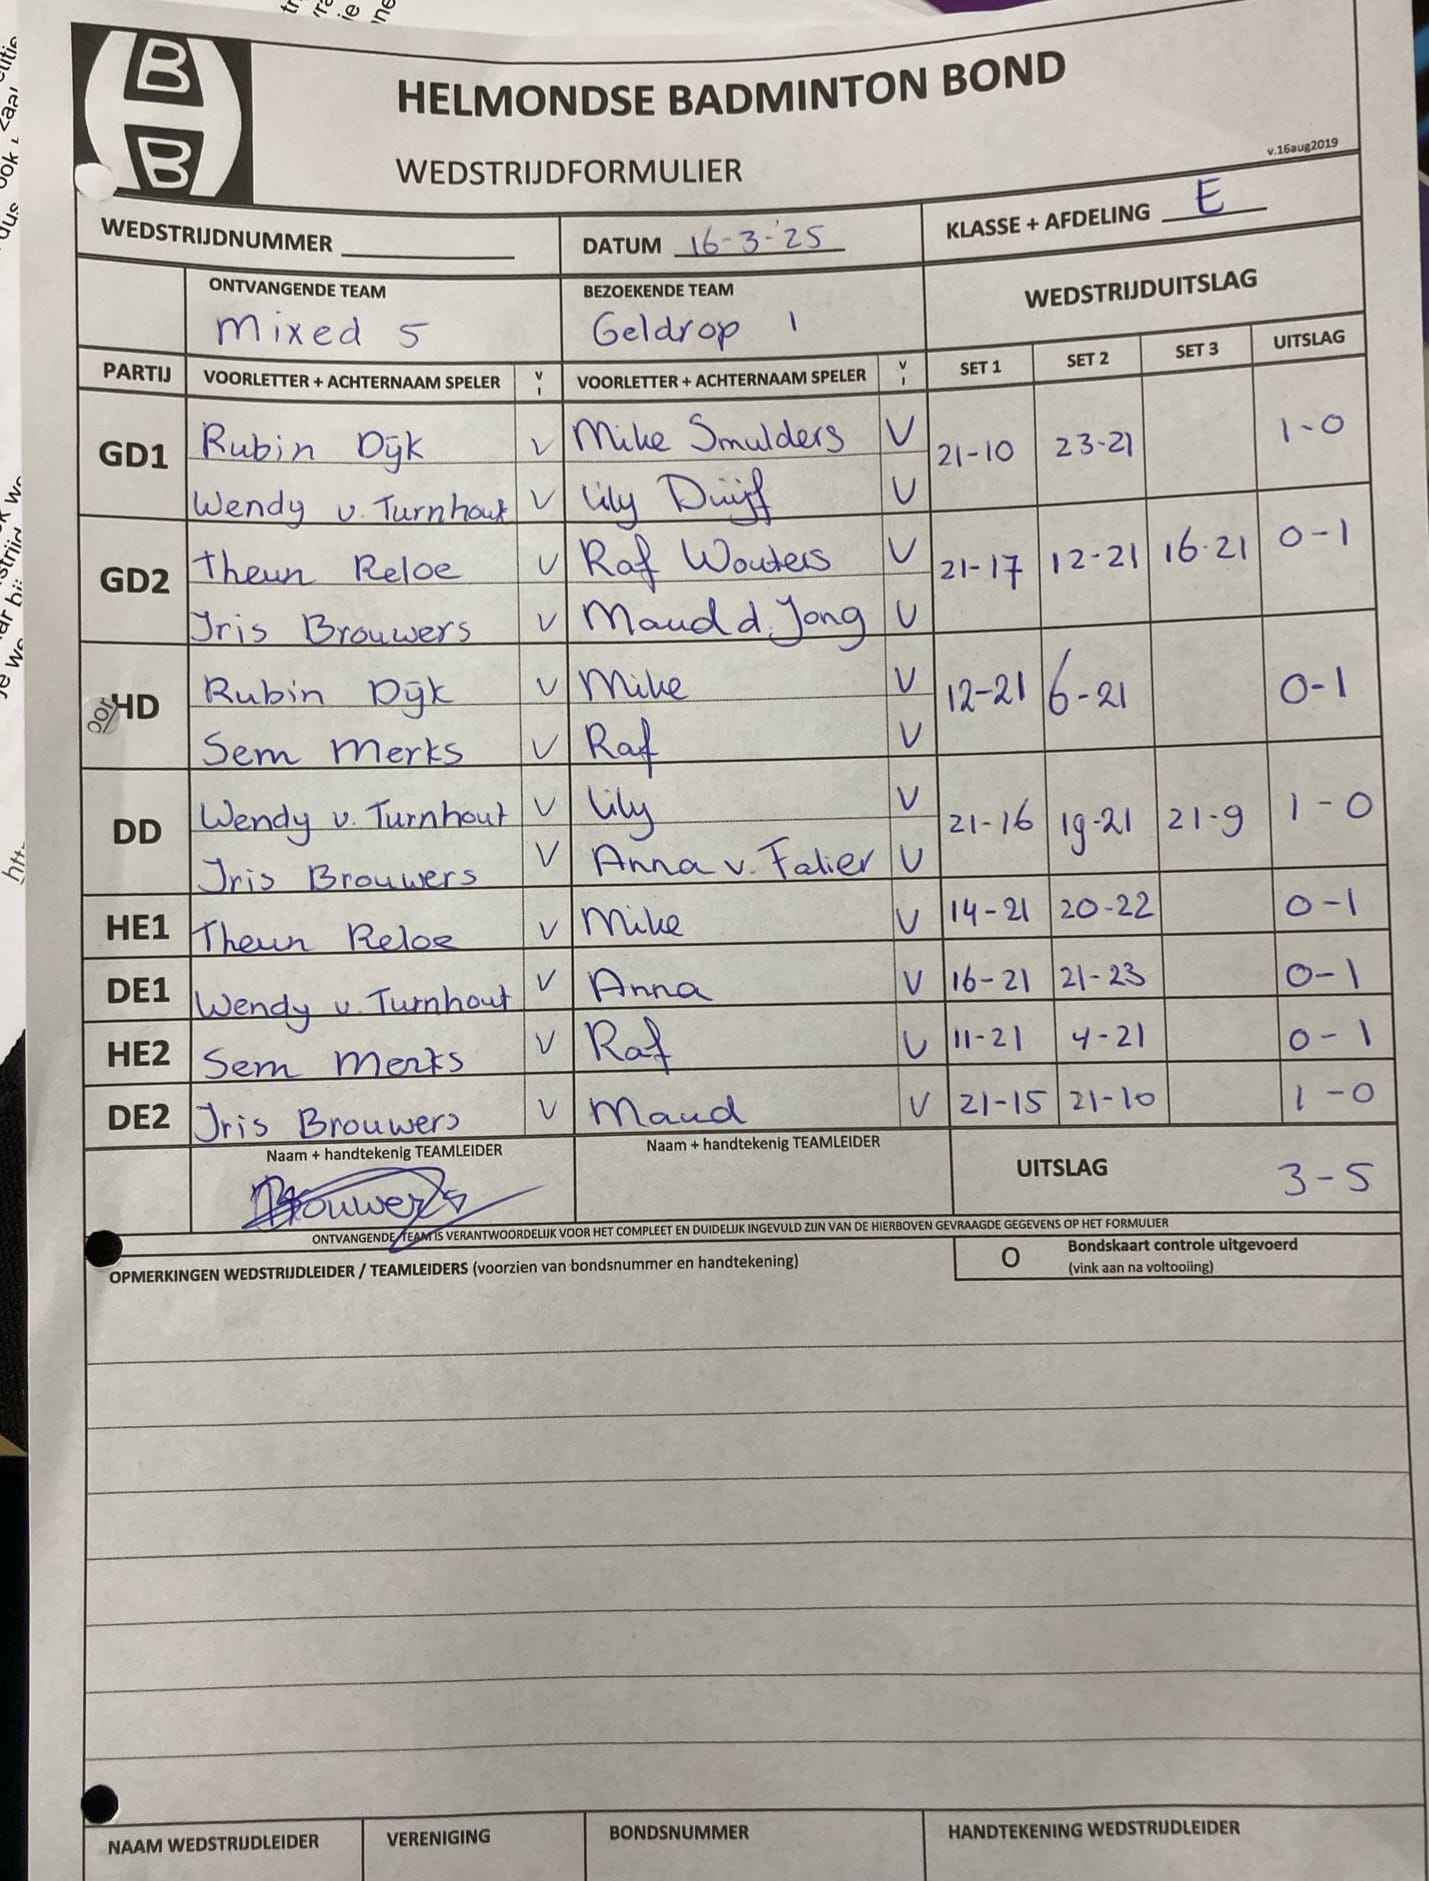 B
B
HELMONDSE BADMINTON BOND
WEDSTRIJDFORMULIER
v.16aug2019
WEDSTRIJDNUMMER DATUM 16-3-'25 KLASSE + AFDELING E
ONTVANGENDE TEAM BEZOEKENDE TEAM WEDSTRIJDUITSLAG
Mixed 5 Geldrop 1
PARTIJ VOORLETTER + ACHTERNAAM SPELER V I VOORLETTER + ACHTERNAAM SPELER V I SET 1 SET 2 SET 3 UITSLAG
GD1 Rubin Dijk V Mike Smulders V 21-10 23-21 1-0
Wendy v. Turnhout V Lily Duijf V
GD2 Theun Reloe V Raf Wouters V 21-17 12-21 16-21 0-1
Iris Brouwers V Maud d. Jong V
HD Rubin Dijk V Mike V 12-21 6-21 0-1
Sem Merks V Raf V
DD Wendy v. Turnhout V Lily V 21-16 19-21 21-9 1-0
Iris Brouwers V Anna v. Falier V
HE1 Theun Reloe V Mike V 14-21 20-22 0-1
DE1 Wendy v. Turnhout V Anna V 16-21 21-23 0-1
HE2 Sem Merks V Raf V 11-21 4-21 0-1
DE2 Iris Brouwers V Maud V 21-15 21-10 1-0
Naam + handtekenig TEAMLEIDER Naam + handtekenig TEAMLEIDER UITSLAG 3-5
Brouwers
ONTVANGENDE TEAM IS VERANTWOORDELIJK VOOR HET COMPLEET EN DUIDELIJK INGEVULD ZIJN VAN DE HIERBOVEN GEVRAAGDE GEGEVENS OP HET FORMULIER
OPMERKINGEN WEDSTRIJDLEIDER / TEAMLEIDERS (voorzien van bondsnummer en handtekening)
O Bondskaart controle uitgevoerd
(vink aan na voltooiing)
NAAM WEDSTRIJDLEIDER VERENIGING BONDSNUMMER HANDTEKENING WEDSTRIJDLEIDER